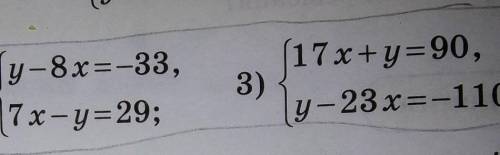 y-8x=-33,
7x-y=29;
3)
17x+y=90,
y-23x=-110